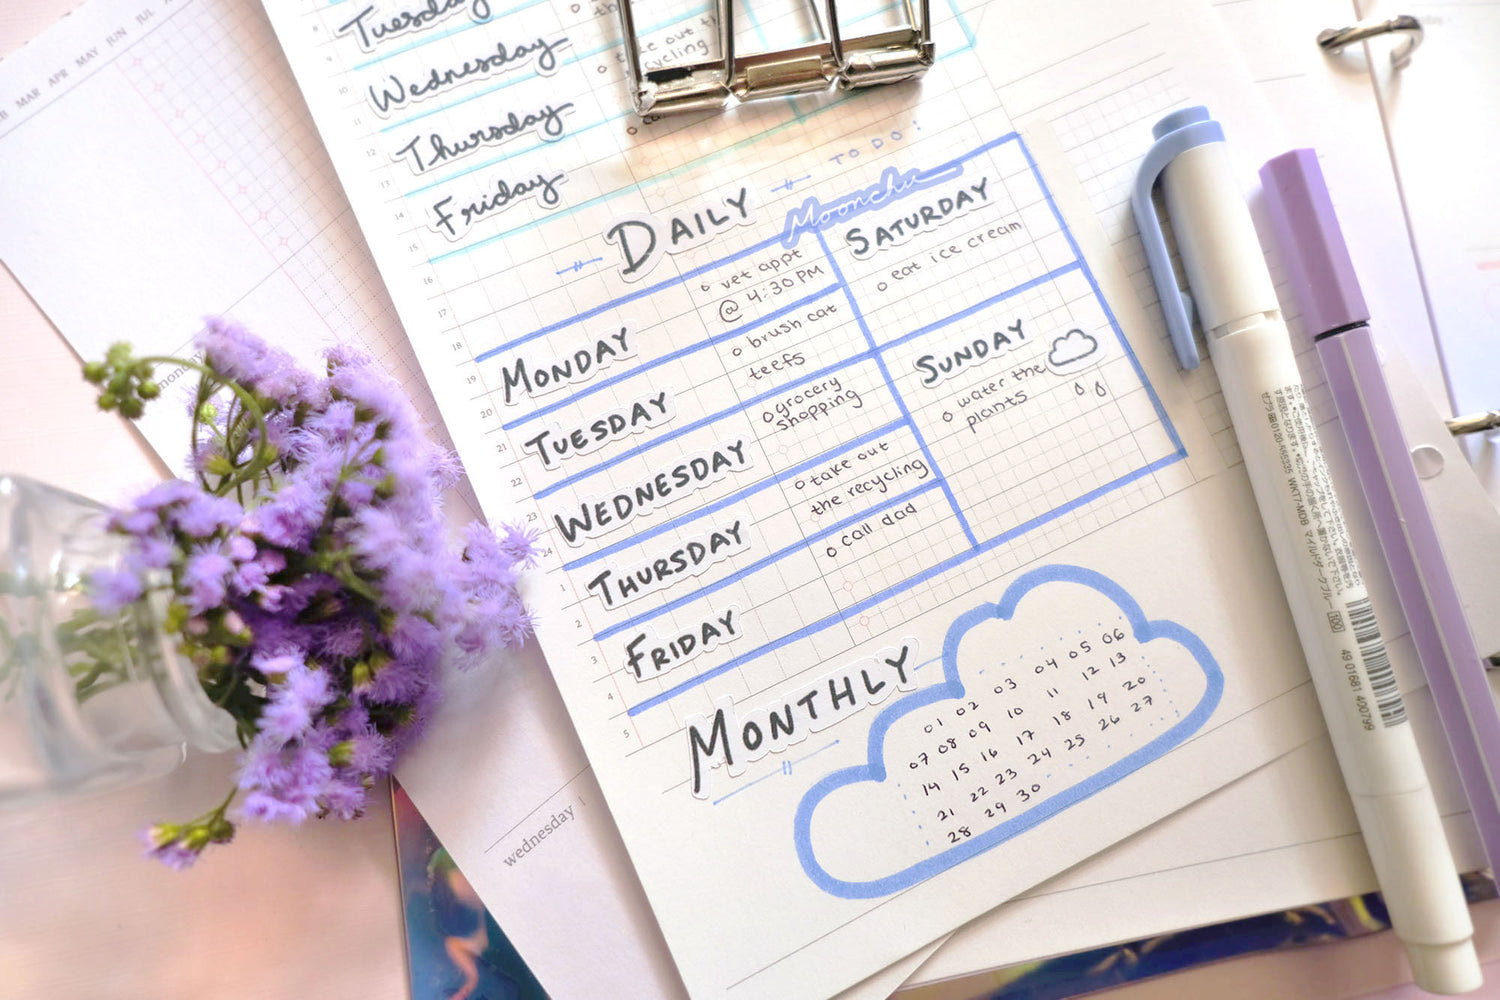 MAR APR MAY JUN JUL
Tuesday
Wednesday
Thursday
Friday
take out
recycling
TO DO!
DAILY
Moonchu
MONDAY
vet appt
@ 4:30 PM
TUESDAY
brush cat
teefs
WEDNESDAY
grocery
shopping
THURSDAY
take out
the recycling
FRIDAY
call dad
SATURDAY
eat ice cream
SUNDAY
water the
plants
MONTHLY
01 02 03 04 05 06
07 08 09 10 11 12 13
14 15 16 17 18 19 20
21 22 23 24 25 26 27
28 29 30
8
9
10
11
12
13
14
15
16
17
18
19
20
21
22
23
24
1
2
3
4
5
monday
wednesday
49 01681 400799